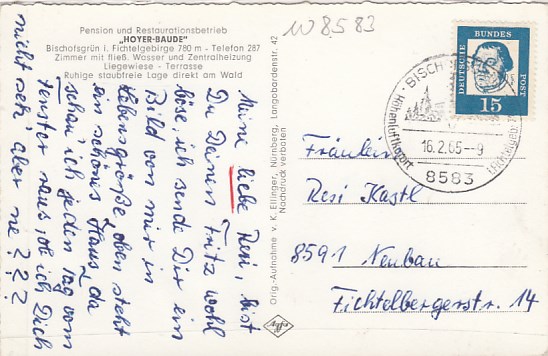 Pension und Restaurationsbetrieb
„HOYER-BAUDE"
Bischofsgrün i. Fichtelgebirge 780 m - Telefon 287
Zimmer mit fließ. Wasser und Zentralheizung
Liegewiese - Terrasse
Ruhige staubfreie Lage direkt am Wald
Meine liebe Resi, bist
Du Deinem Fritz wohl
böse, ich sende Dir ein
Bild von mir in
Lebensgröße, oben steht
ein schönes Haus, da
schau ich jeden Tag vom
Fenster raus, ob ich Dich
nicht seh, aber nie ? ? ?
Orig.-Aufnahme v. K. Ettinger, Nürnberg, Langobardenstr. 42
Nachdruck verboten
Agfa
W 8583
DEUTSCHE BUNDES POST
15
BISCH
Höhenluftkurort
16.2.65-9
8583
Fräulein
Resi Kastl
8591 Neubau
Fichtelbergerstr. 14